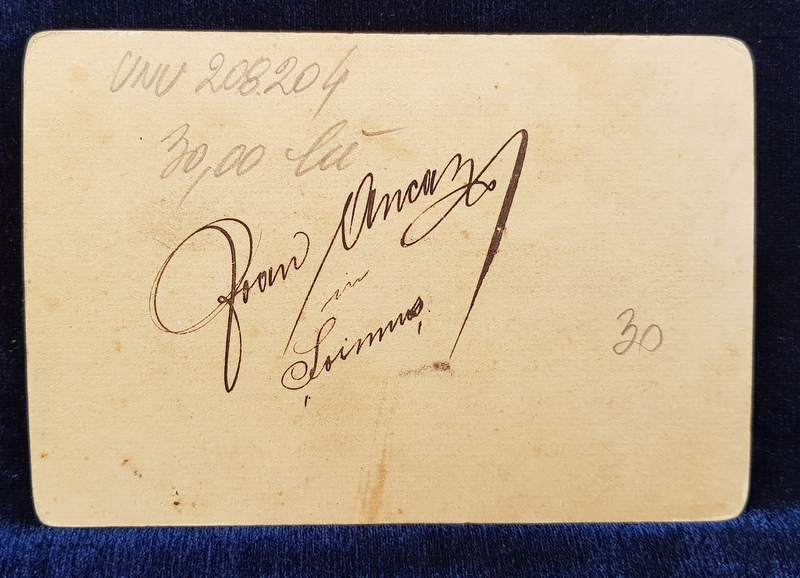 UNU 208.204
30,00 lei
Ioan Ancaz
in
Șoimuș
30